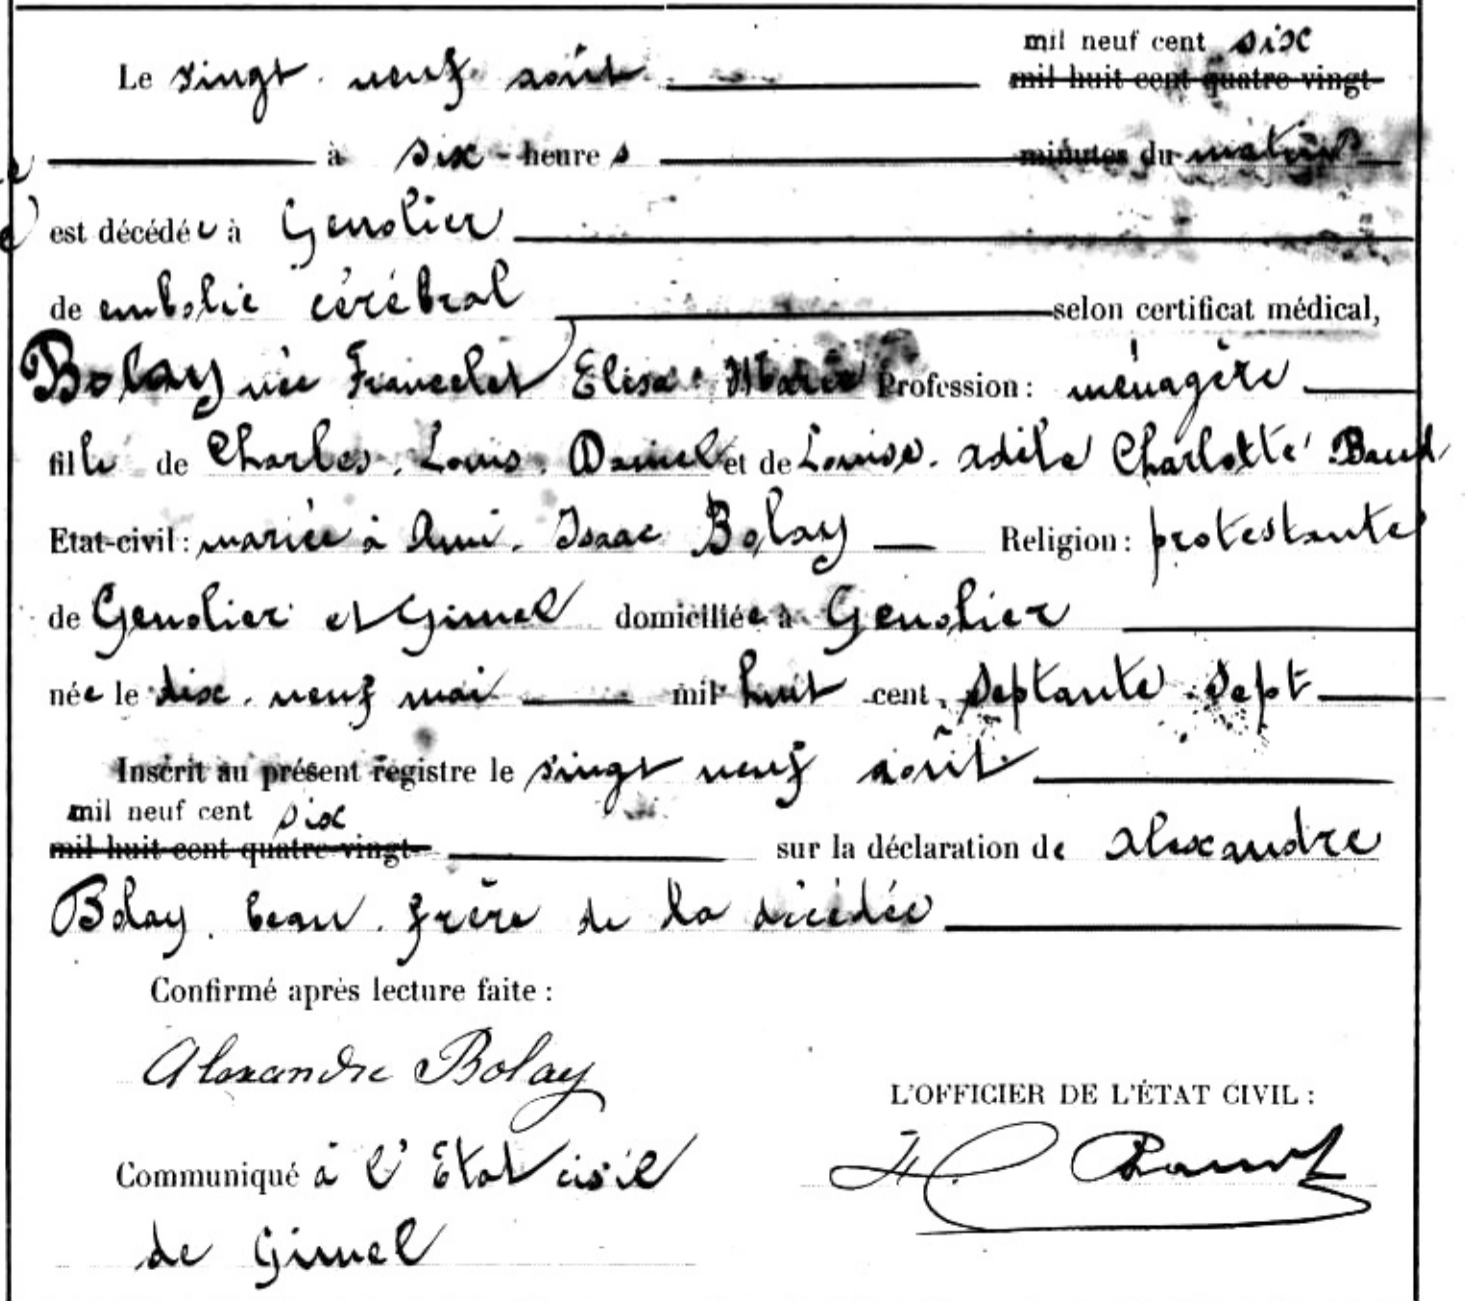 mil neuf cent six
Le vingt neuf août mil huit cent quatre-vingt-
à six heures minutes du matin
est décédée à Genolier
de embolie cérébral selon certificat médical,
Bolay née Francelet Elisa Marie Profession : ménagère
fille de Charles. Louis. Daniel et de Louise. Adèle Charlotte Baud
Etat-civil : mariée à Ami. Isaac Bolay Religion : protestante
de Genolier et Gimel domiciliée à Genolier
née le dix. neuf mai mil huit cent septante sept
Inscrit au présent registre le vingt neuf août
mil neuf cent six
mil huit cent quatre-vingt- sur la déclaration de Alexandre
Bolay. beau. frère de la décédée
Confirmé après lecture faite :
Alexandre Bolay
L'OFFICIER DE L'ÉTAT CIVIL :
Communiqué à l'Etat civil
de Gimel